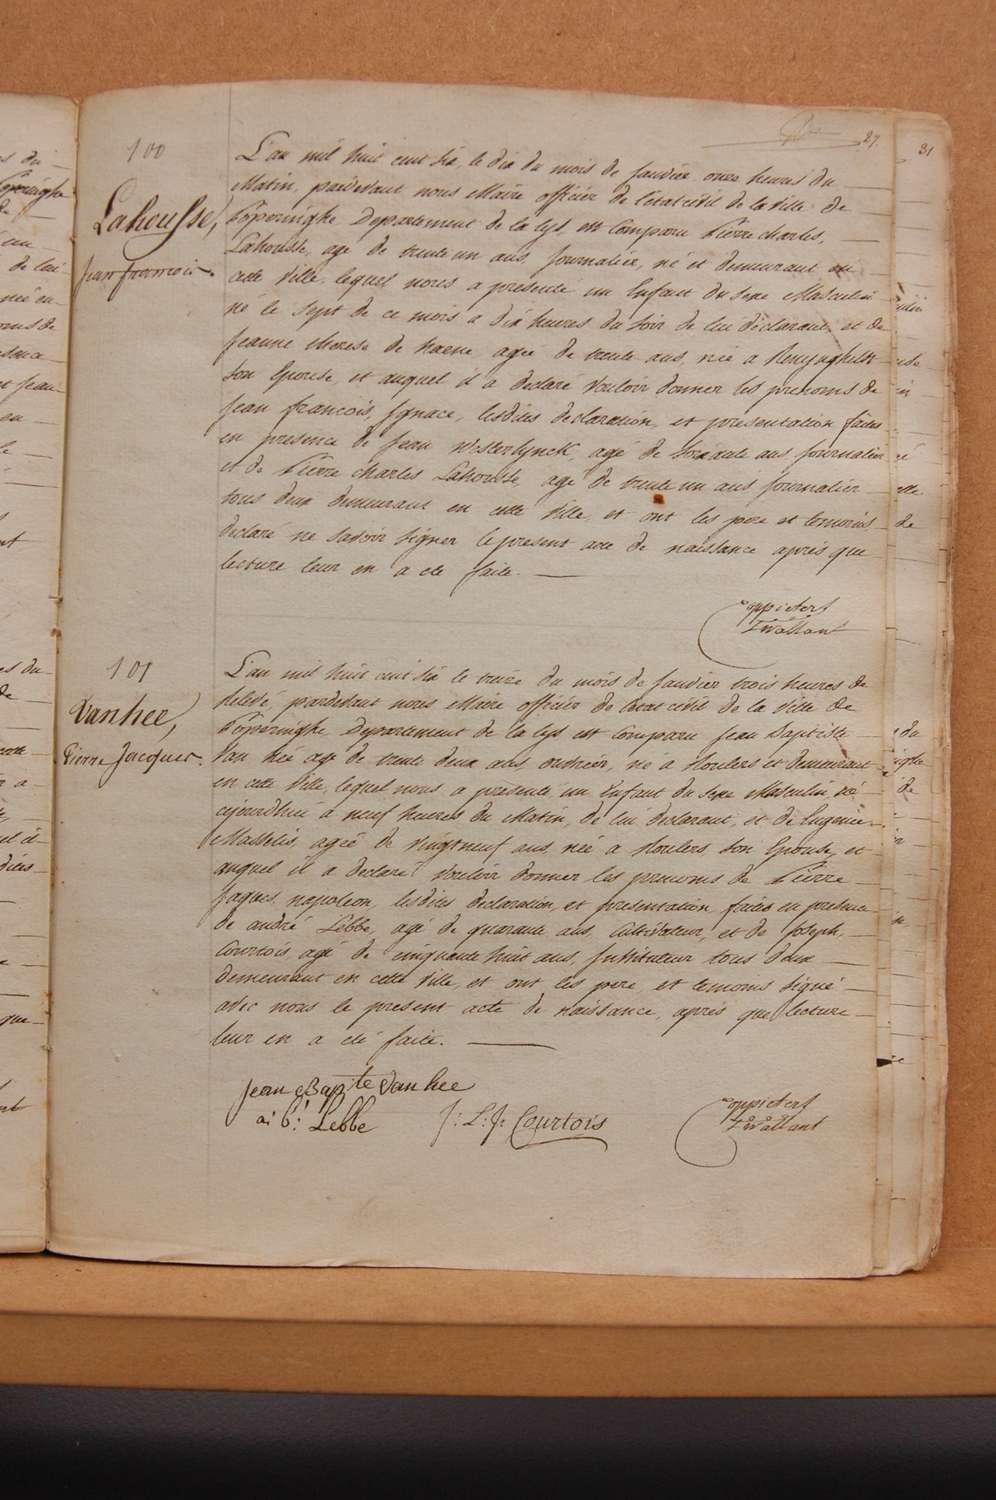 27.
31
100
Lahousse,
Jean francois.
L'an mil huit cent six le dix du mois de Janvier onze heures du
Matin, pardevant nous Maire officier de l'état civil de la ville de
Poperinghe Departement de la Lys est Comparu Pierre charles,
Lahousse, agé de trente un ans, Journalier, né et demeurant en
cette Ville, lequel nous a presenté un Enfant du sexe Masculin
né le sept de ce mois a dix heures du soir de lui declarant, et de
Jeanne therese de haene, agée de trente ans, née a Renynghelst
son Epouse, et auquel il a declaré vouloir donner les prenoms de
Jean francois, Ignace, lesdites declaration, et presentation faites
en presence de Jean Westerlynck, agé de soixante ans Journalier
et de Pierre charles Lahousse agé de trente un ans Journalier
tous deux demeurant en cette Ville, et ont les pere et temoins
declaré ne savoir signer le present acte de naissance après que
lecture leur en a eté faite.
Coppieters
t'wallant
101
Vanhee,
Pierre Jacques.
L'an mil huit cent six le treize du mois de Janvier trois heures de
relevé, pardevant nous Maire officier de l'etat civil de la Ville de
Poperinghe Departement de la Lys est Comparu Jean Baptiste
Van hée agé de trente deux ans, ouvrier, né a Vlamertinghe et demeurant
en cette Ville, lequel nous a presenté un Enfant du sexe Masculin, né
cejourdhui à neuf heures du Matin, de lui declarant, et de Eugenie
Masselis, agée de vingtneuf ans née a son Epouse, et
auquel il a declaré vouloir donner les prenoms de Pierre
Jaques, napoleon, lesdites declaration, et presentation faites en presence
de andré Lebbe, agé de quarante ans, Cultivateur, et de Joseph,
Courtois, agé de cinquante huit ans, Instituteur tous deux
demeurant en cette Ville, et ont les pere, et temoins signé
avec nous le present acte de naissance, après que lecture
leur en a eté faite.
Jean Bapte Vanhee
a: b: Lebbe
J: L: J: Courtois
Coppieters
t'wallant